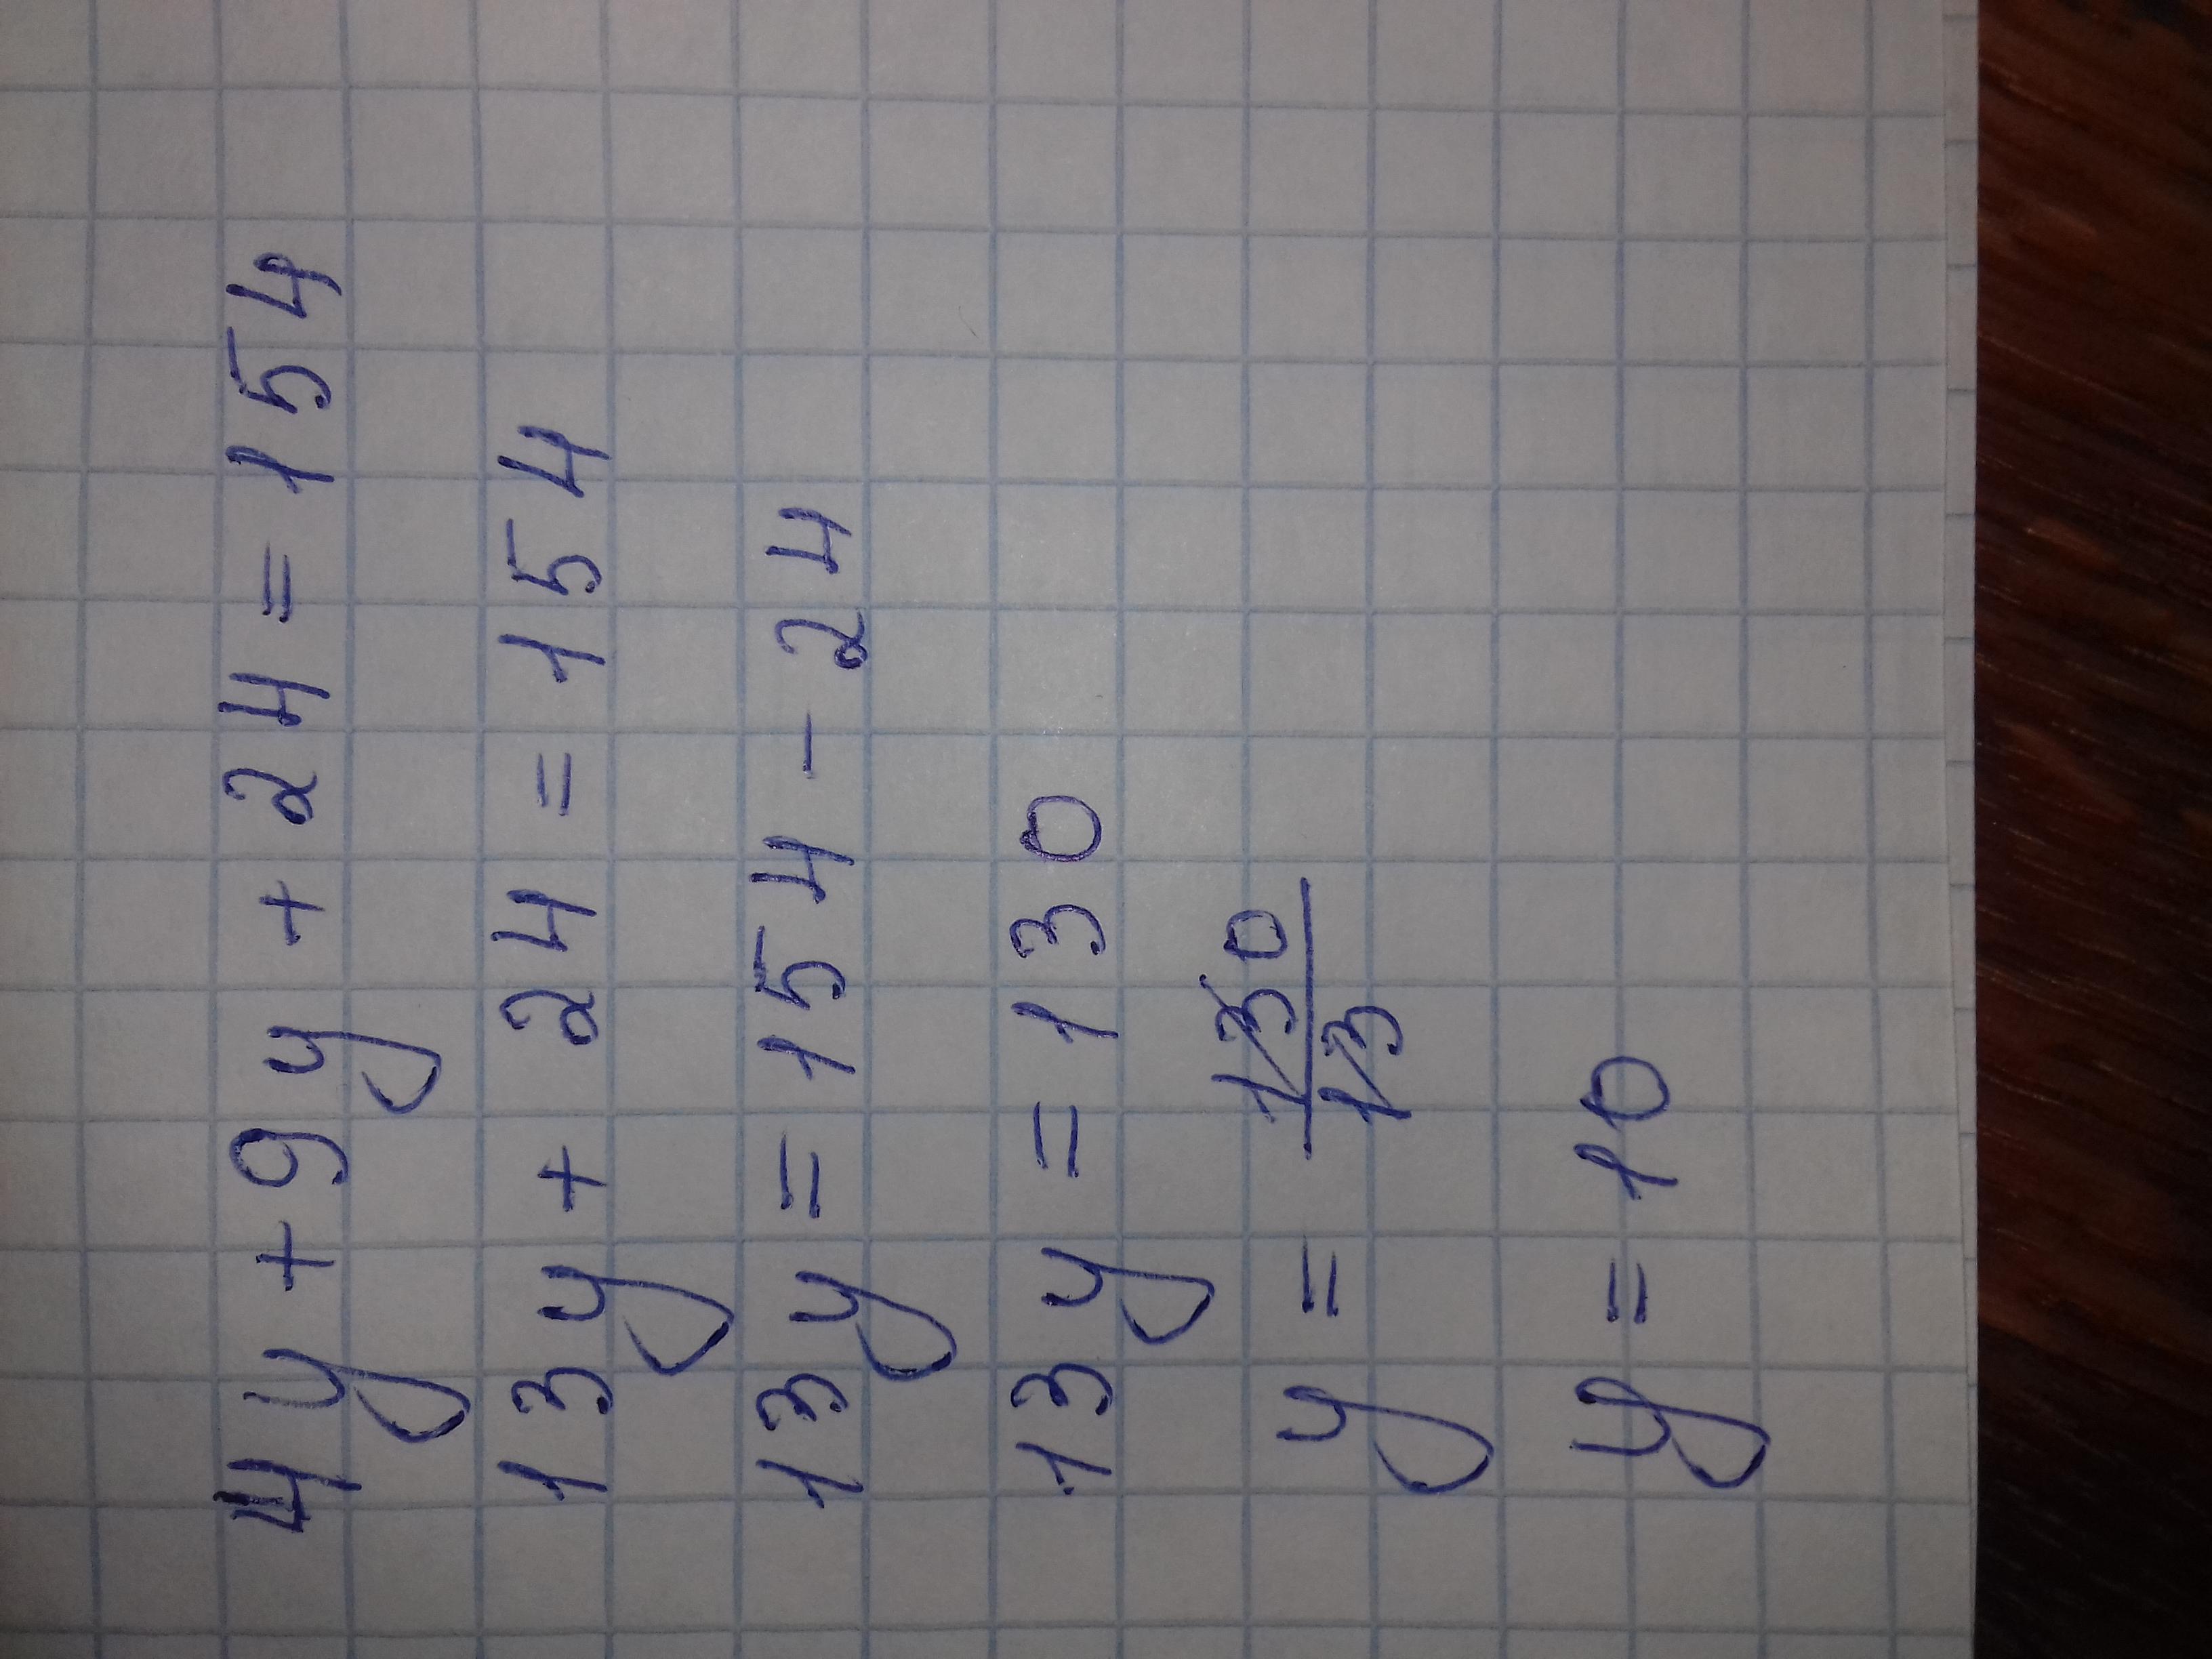 4y + 9y + 24 = 154
13y + 24 = 154
13y = 154 - 24
13y = 130
y = 130/13
y = 10